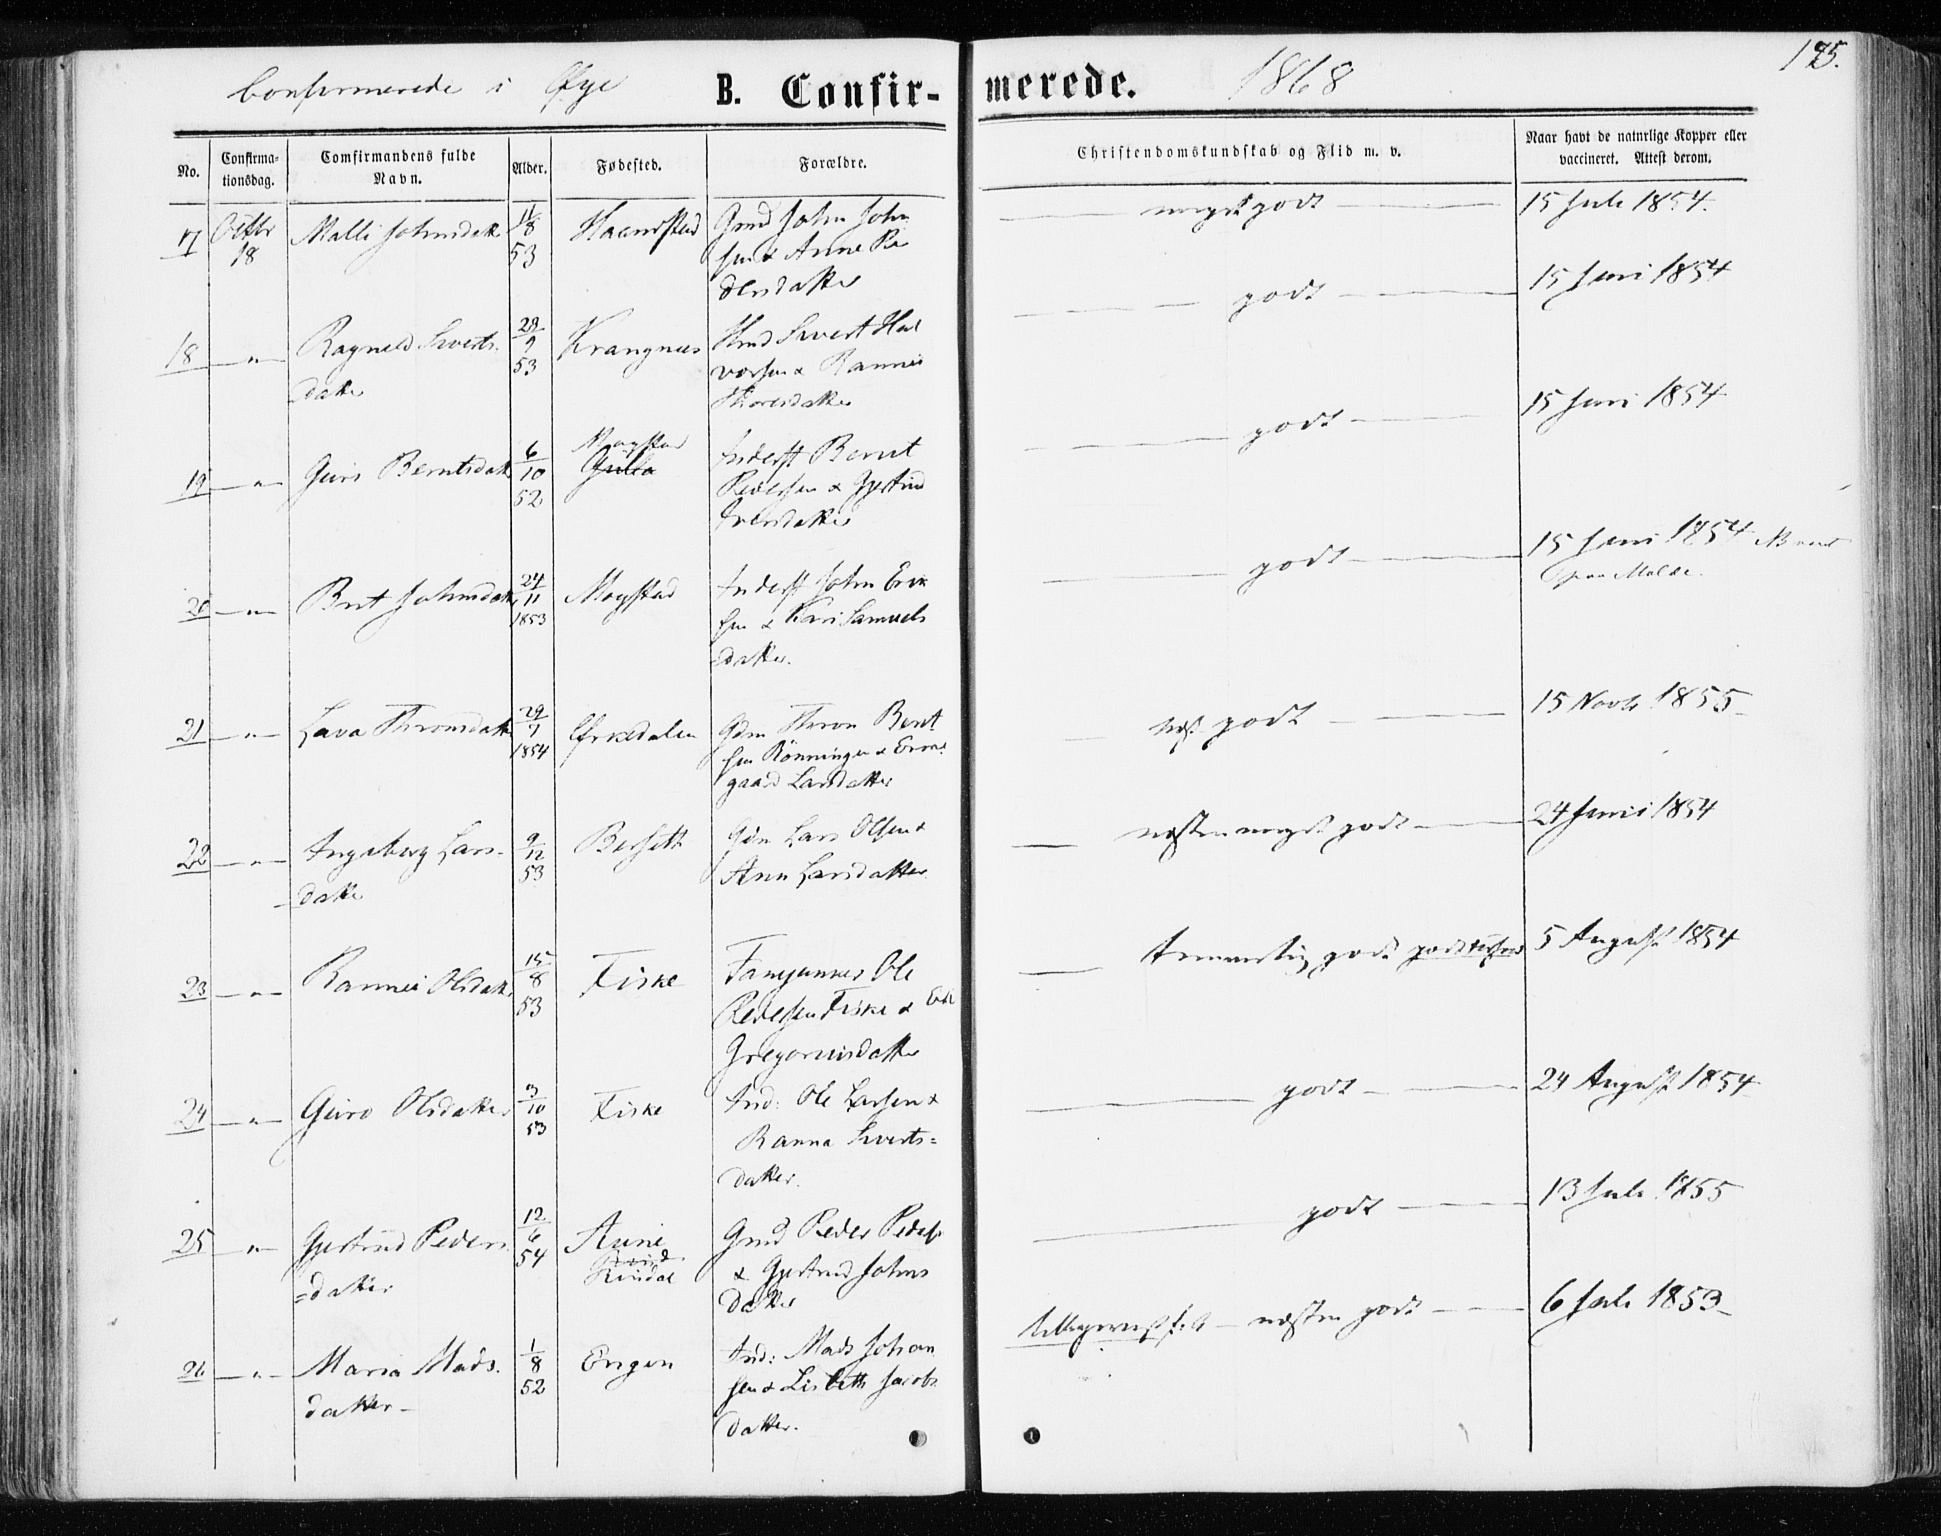 Confirmerede i Øye B. Confir-
merede. 1868
175.
No.
Confirma-
tionsdag.
Comfirmandens fulde
Navn.
Alder.
Fødested.
Forældre.
Christendomskundskab og Flid m. v.
Naar havt de naturlige Kopper eller
vaccineret. Attest derom.
17 Octbr 18 Malli Johnsdatt 11/8 53
Gmd John John
sen & Anne Pe
dersdatter
meget godt
15 Juli 1854.
18 " Ragneld Siverts
datter
29/9 53
Krangnes
Hmd Sivert Hal
vorsen & Rannei
Thoresdatter
godt
15 Juni 1854
19 " Guri Berntsdatt
6/10 52
Mogstad
Gulla
Inderst Bernt
Pedersen & Gjertrud
Iversdatter
godt
15 Juni 1854
20 " Brit Johnsdatt
24/11 1853
Mogstad
Inderst John Erik
sen & Kari Samuels
datter.
godt
15 Juni 1854
paa Molde.
21 " Lava Thronsdatt
29/7 1854
Ørkedalen
Gdm Thron Bernt
sen Rönningen &
gaard Larsdatter
godt
15 Novbr 1855
22 " Ingeborg Lars-
datter
9/12 53
Bolseth
Gdm Lars Olsen &
Ann Larsdatter
næsten meget godt
24 Juni 1854
23 " Rannei Olsdatt
15/8 53
Fiske
Ole
Pedersen Fiske &
Gregoriusdatter
temmelig godt
5 August 1854
24 " Guro Olsdatter
3/10 53
Fiske
Ind: Ole Larsen &
Ranna Siverts=
datter.
godt
24 August 1854
25 " Gjertrud Peders
=datter
12/6 54
Aune
Rindal
Gmd Peder Peders
& Gjertrud Johns
datter
godt
13 Juli 1855
26 " Maria Mads.
datter
1/8 52
Engen
Ind: Mads Johan
sen & Lisbeth Jacobs
datter.
næsten godt
6 Juli 1853